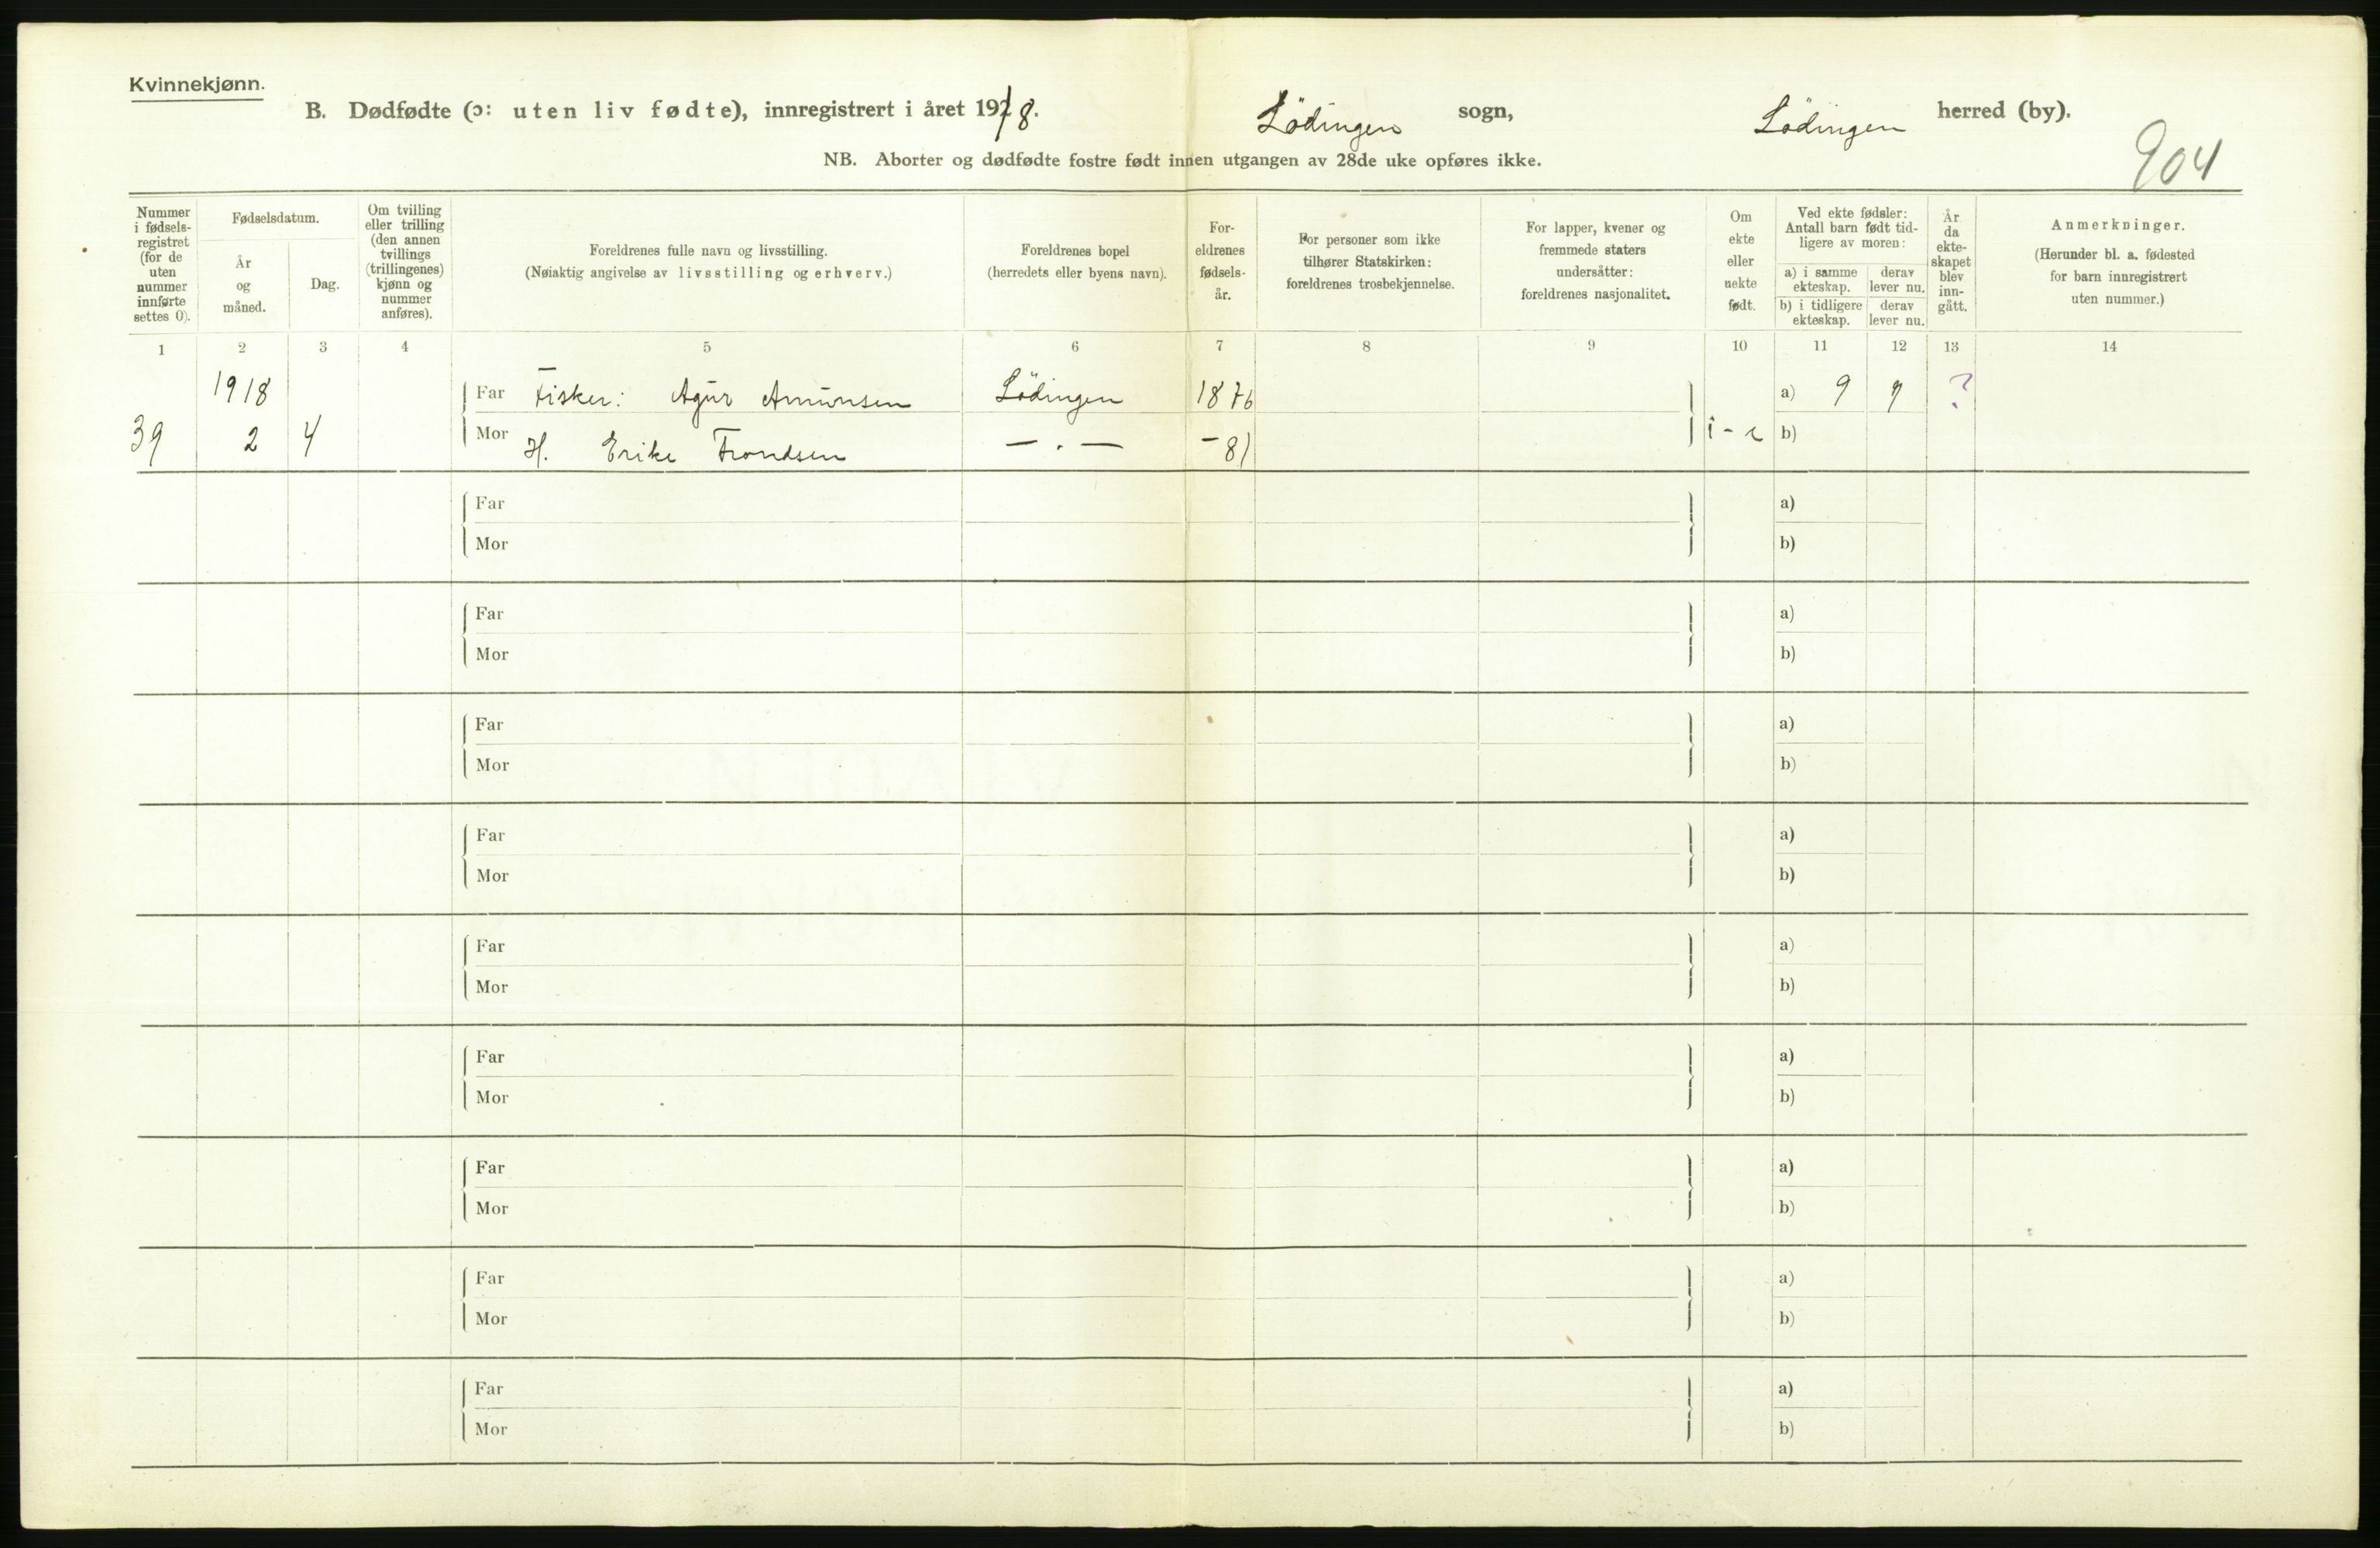 Kvinnekjønn.
B. Dødfødte (ɔ: uten liv fødte), innregistrert i året 1918. Lödingen sogn, Lödingen herred (by).
NB. Aborter og dødfødte fostre født innen utgangen av 28de uke opføres ikke.
904
Nummer
i fødsels-
registret
(for de
uten
nummer
innførte
settes 0).
Fødselsdatum.
År
og
måned.
Dag.
Om tvilling
eller trilling
(den annen
tvillings
(trillingenes)
kjønn og
nummer
anføres).
Foreldrenes fulle navn og livsstilling.
(Nøiaktig angivelse av livsstilling og erhverv.)
Foreldrenes bopel
(herredets eller byens navn).
For-
eldrenes
fødsels-
år.
For personer som ikke
tilhører Statskirken:
foreldrenes trosbekjennelse.
For lapper, kvener og
fremmede staters
undersåtter:
foreldrenes nasjonalitet.
Om
ekte
eller
uekte
født.
Ved ekte fødsler:
Antall barn født tid-
ligere av moren:
a) i samme
ekteskap.
derav
lever nu.
b) i tidligere
ekteskap.
derav
lever nu.
År
da
ekte-
skapet
blev
inn-
gått.
Anmerkninger.
(Herunder bl. a. fødested
for barn innregistrert
uten nummer.)
1 2 3 4 5 6 7 8 9 10 11 12 13 14
1918 Far Fisker: Agur Amunsen Lödingen 1876 a) 9 9 ?
39 2 4 Mor H. Erike Trondsen — . — - 81 b)
Far a)
Mor b)
Far a)
Mor b)
Far a)
Mor b)
Far a)
Mor b)
Far a)
Mor b)
Far a)
Mor b)
Far a)
Mor b)
Far a)
Mor b)
Far a)
Mor b)